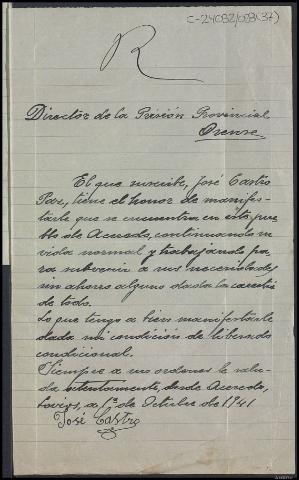 C-24082/008(37)
R
Director de la Prisión Provincial
Orense
El que suscribe, José Castro
Paz, tiene el honor de manifes-
tarle que se encuentra en este pue-
blo de Aceredo, continuando su
vida normal y trabajando pa-
ra subvenir a sus necesidades,
sin ahorro alguno dada la carestía
de todo.
Lo que tengo a bien manifestarle
dada mi condición de liberado
condicional.
Siempre a sus ordenes le salu-
da atentamente, desde Aceredo,
Lovios, a 1º de Octubre de 1941
José Castro